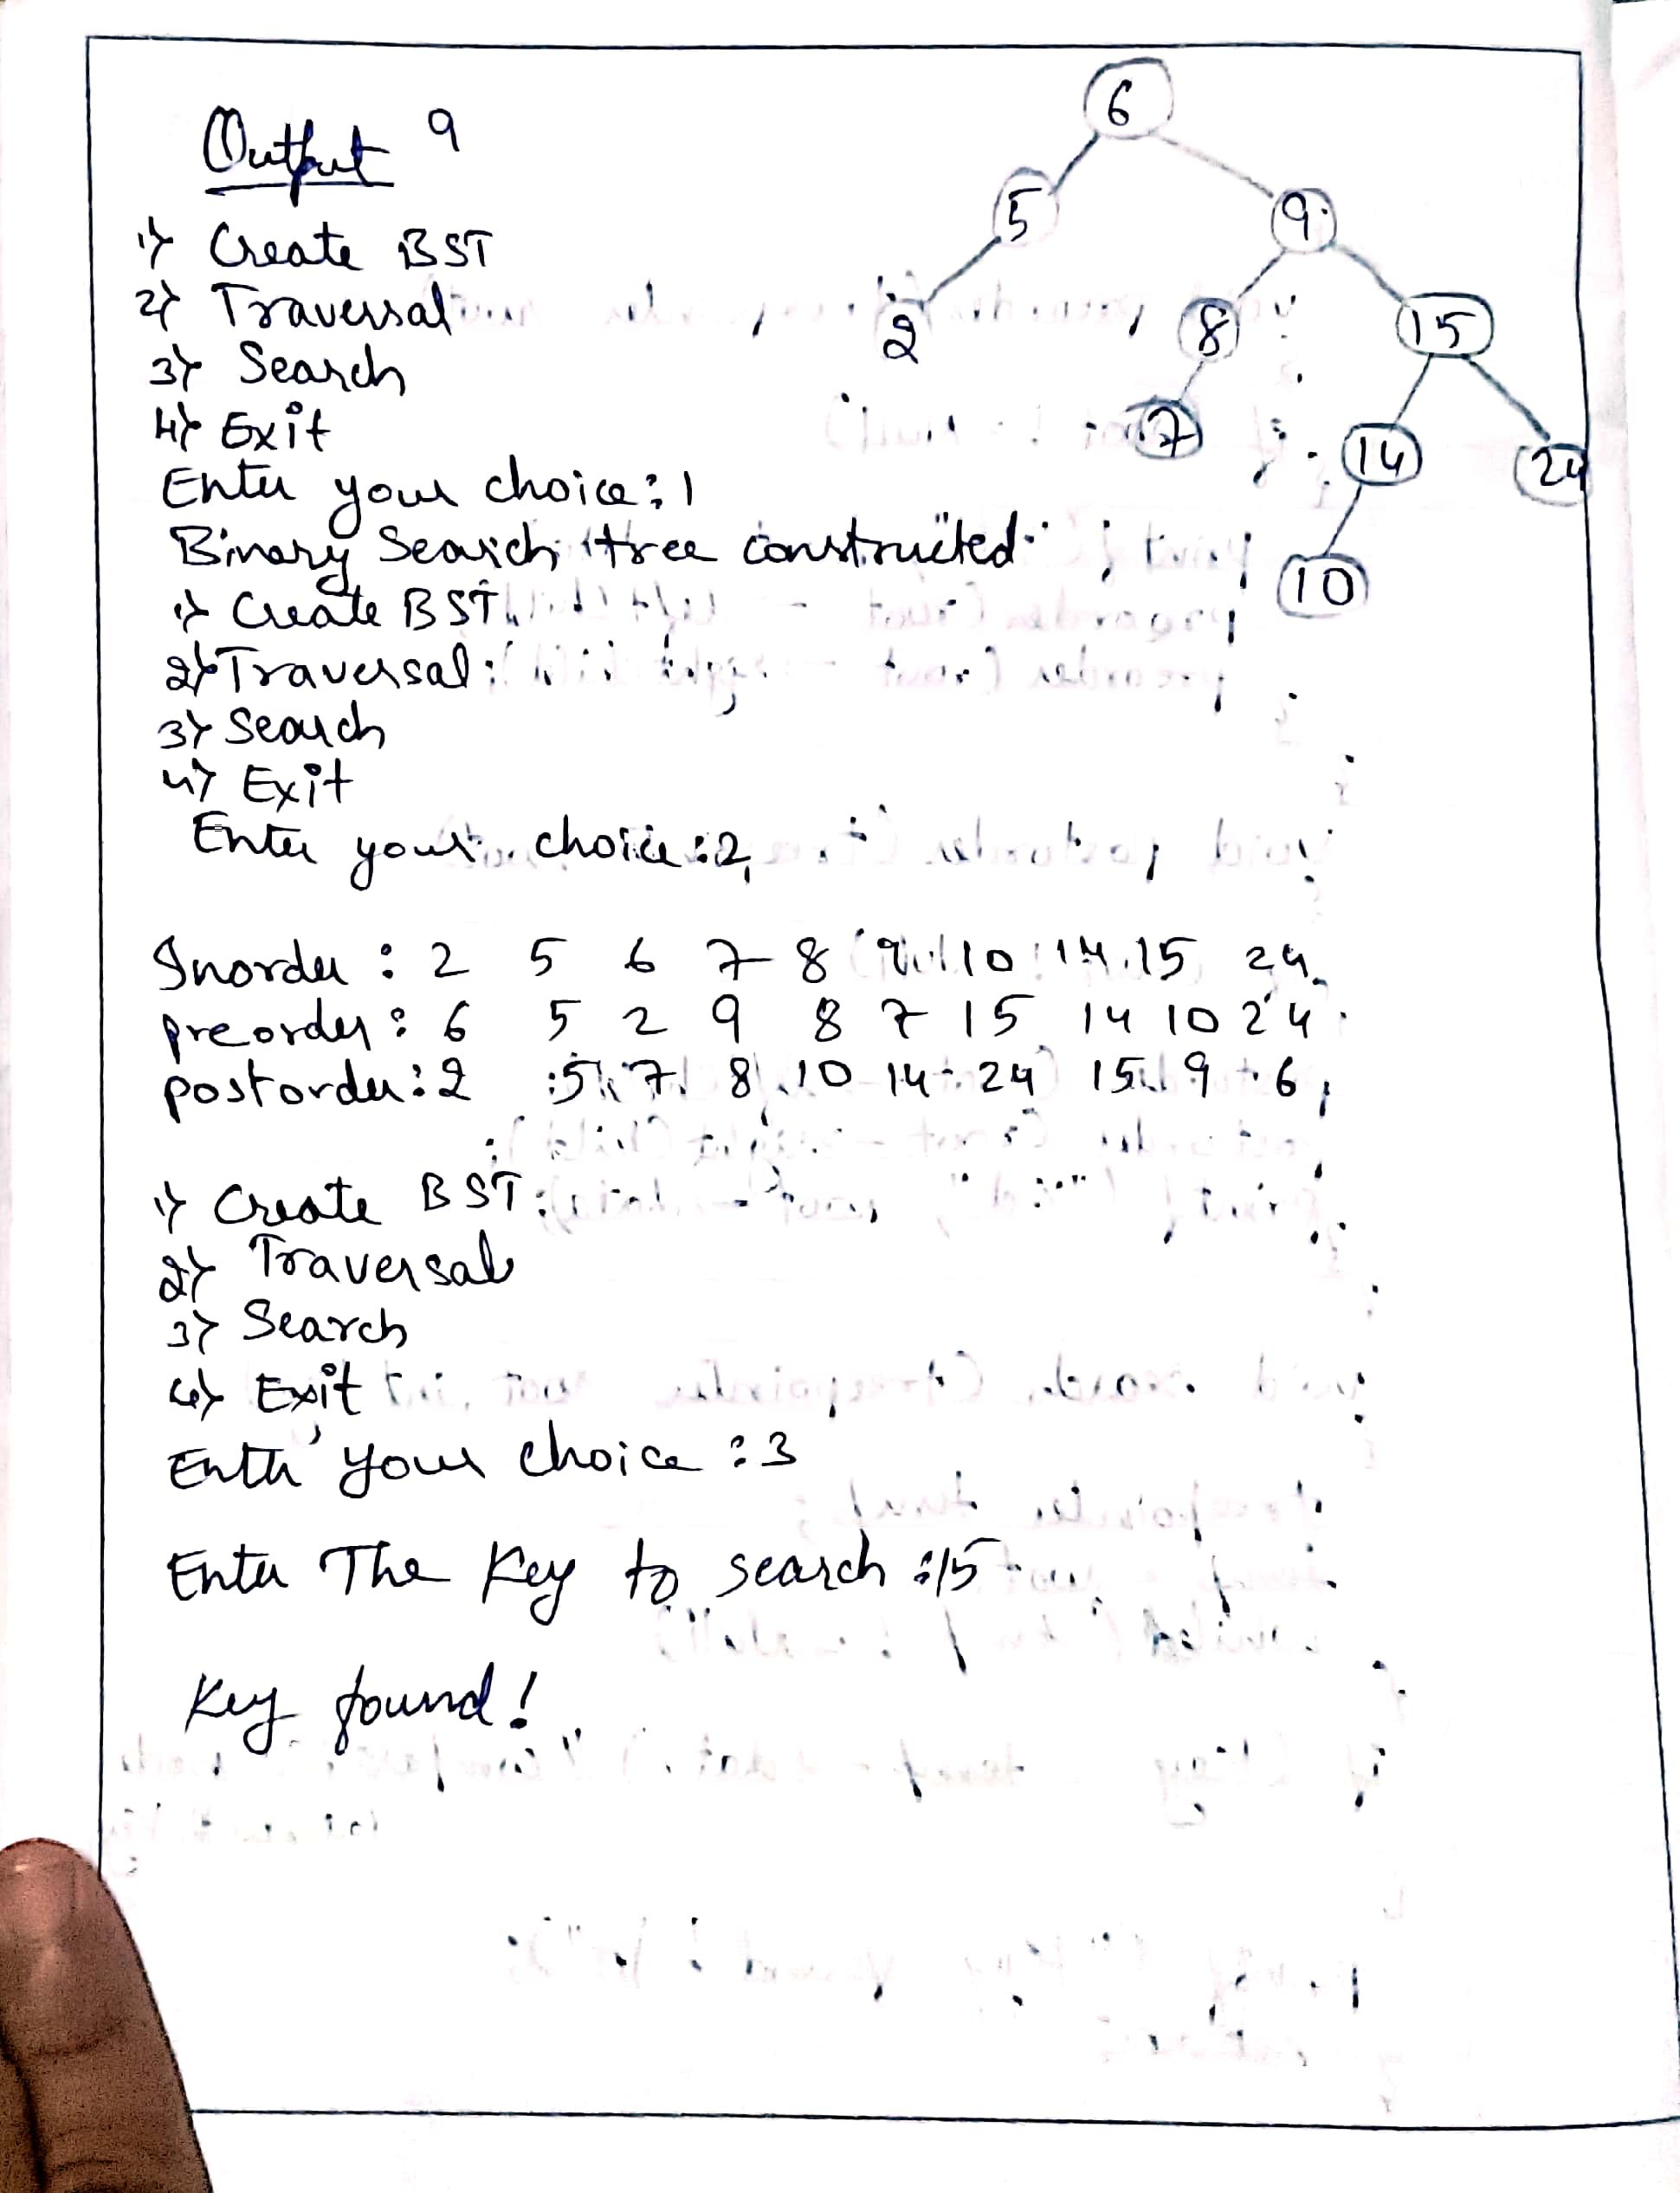 Output 9
1) Create BST
2) Traversal
3) Search
4) Exit
Enter your choice: 1
Binary Search tree constructed
1) Create BST
2) Traversal
3) Search
4) Exit
Enter your choice: 2
Inorder: 2 5 6 7 8 9 10 14 15 24
preorder: 6 5 2 9 8 7 15 14 10 24
postorder: 2 5 7 8 10 14 24 15 9 6
1) Create BST
2) Traversal
3) Search
4) Exit
Enter your choice: 3
Enter The Key to search: 15
Key found!
6
5 9
2 8 15
7 14 24
10